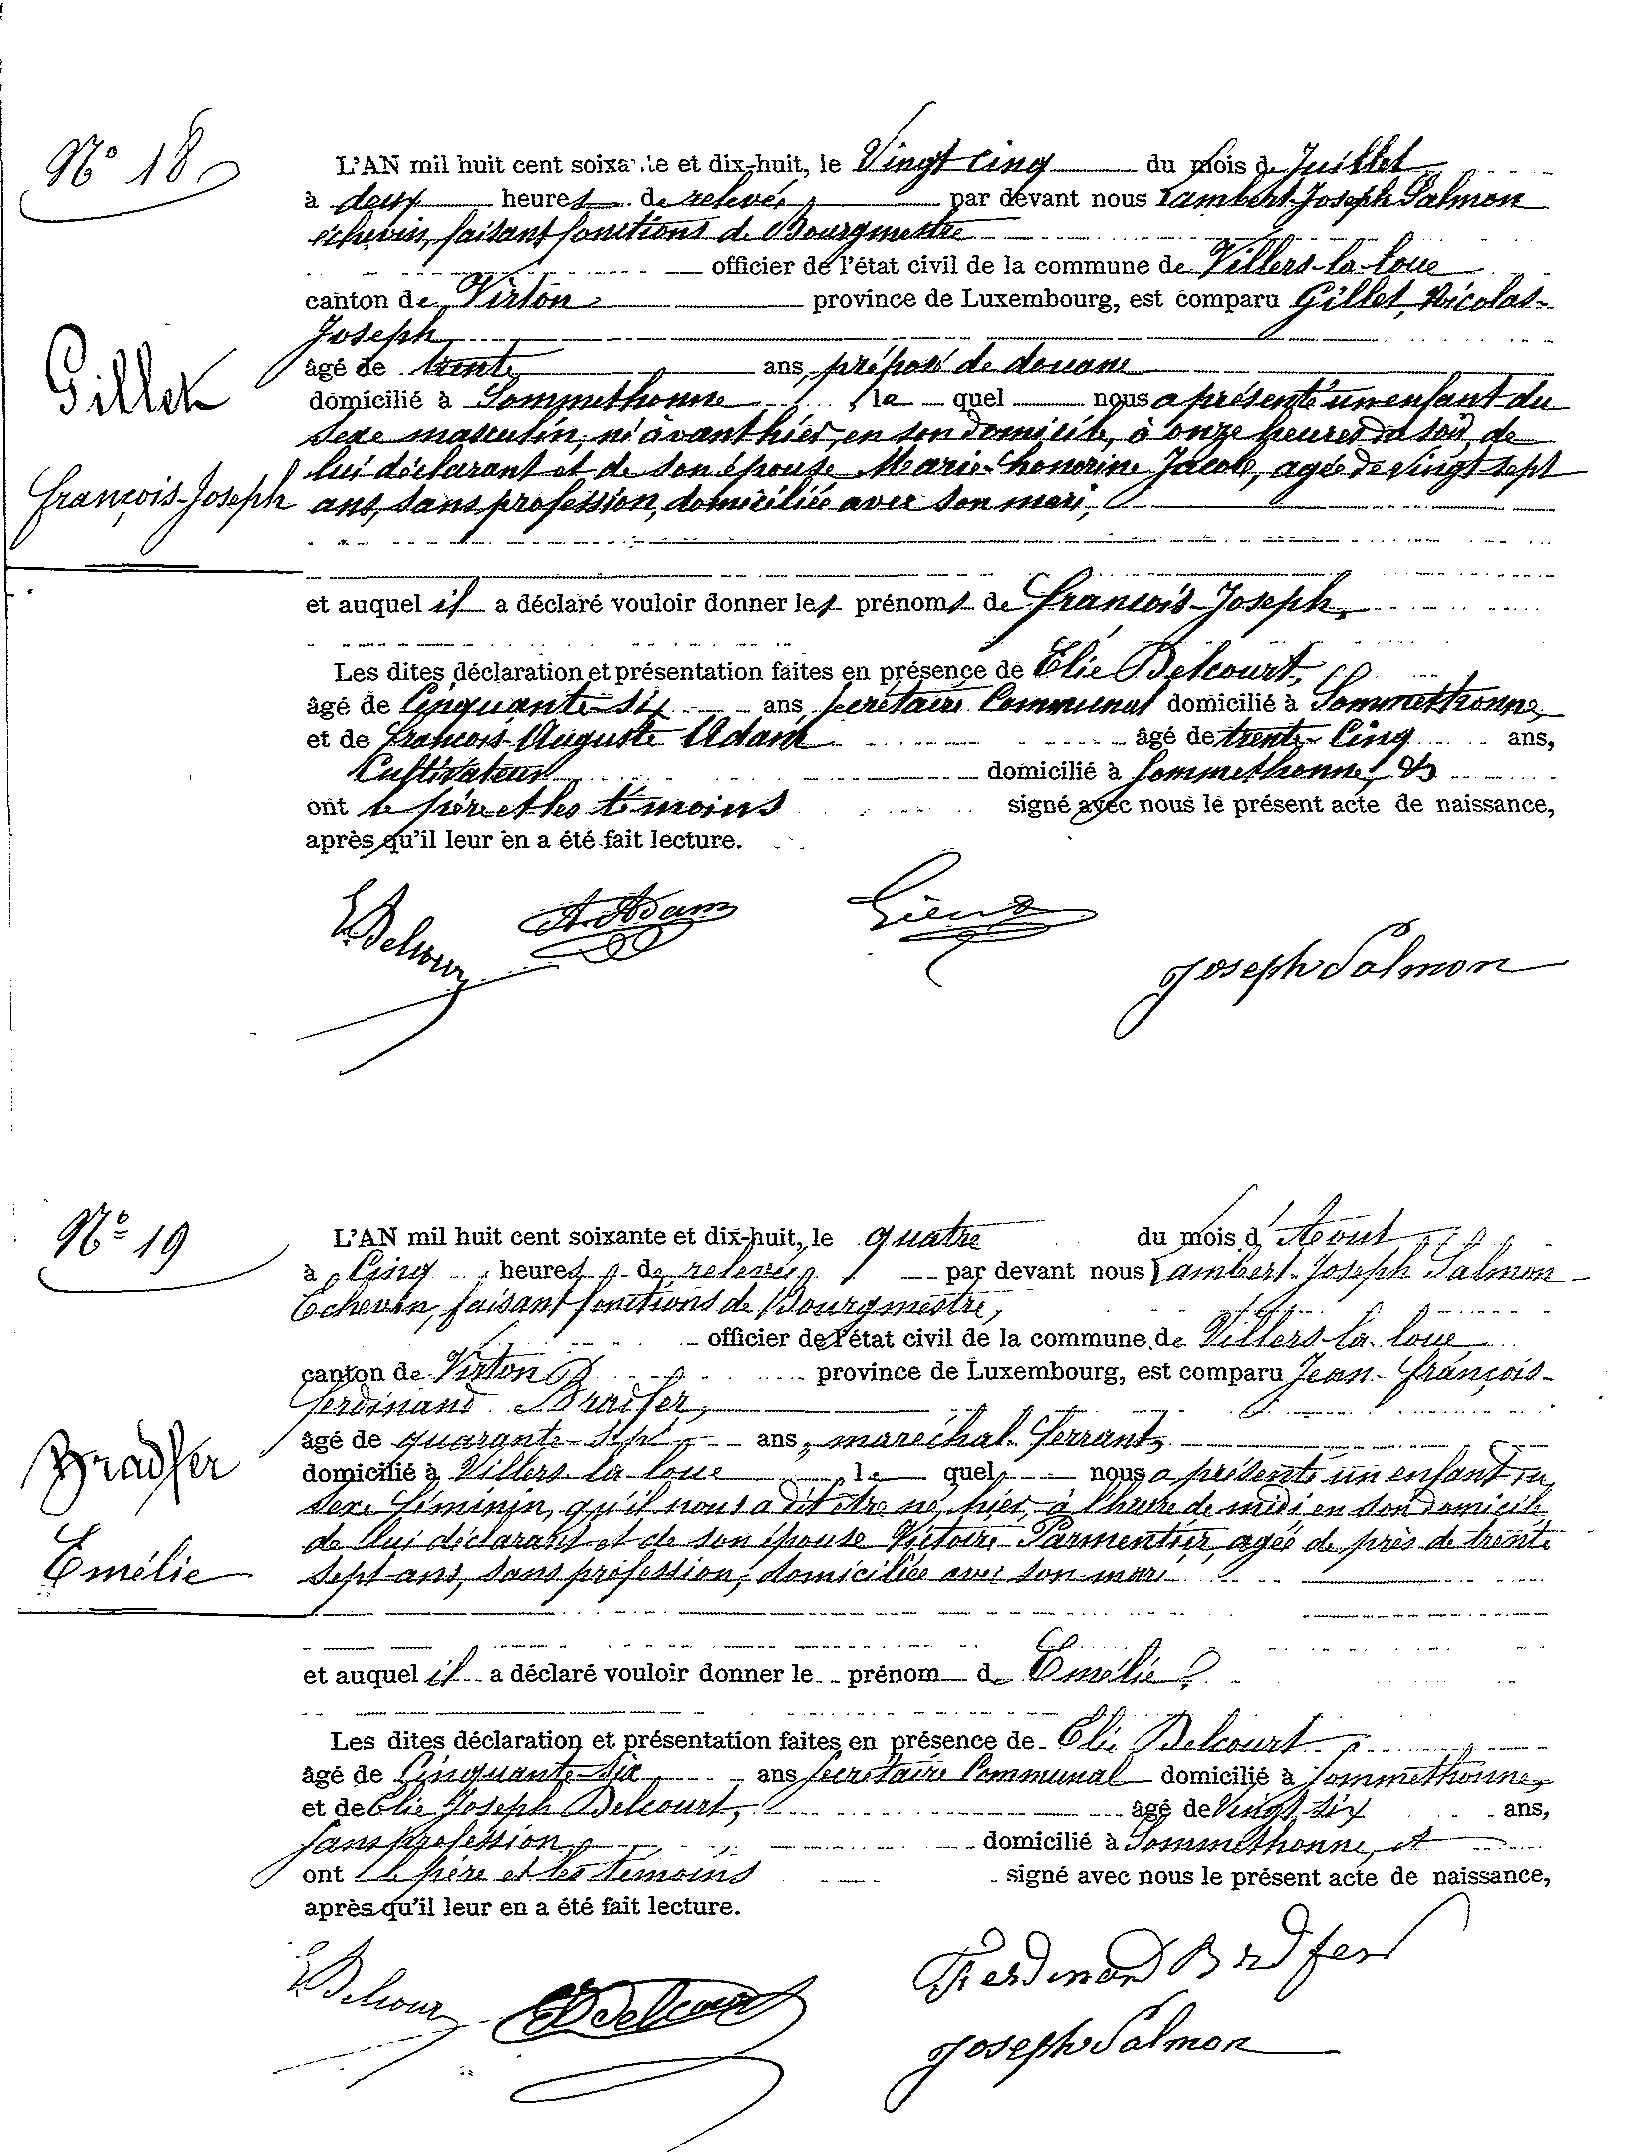 Nº 18
L'AN mil huit cent soixante et dix-huit, le Vingt cinq du mois de Juillet
à deux heures de relevée, par devant nous Lambert-Joseph Salmon
échevin, faisant fonctions de Bourgmestre
officier de l'état civil de la commune de Villers-la-loue
canton de Virton, province de Luxembourg, est comparu Gillet, Nicolas-
Joseph
âgé de trente ans, préposé de douane
domicilié à Sommethonne, le quel nous a présenté un enfant du
Gillet
sexe masculin, né avant hier, en son domicile, à onze heures du soir, de
lui déclarant et de son épouse Marie-honorine Jacob, agée de vingt sept
François-Joseph
ans, sans profession, domiciliée avec son mari,
et auquel il a déclaré vouloir donner les prénoms de François-Joseph,
Les dites déclaration et présentation faites en présence de Elie Delcourt,
âgé de Cinquante-six ans, secrétaire Communal domicilié à Sommethonne,
et de François-Auguste Adam âgé de trente-Cinq ans,
Cultivateur domicilié à Sommethonne, &
ont le père et les témoins signé avec nous le présent acte de naissance,
après qu'il leur en a été fait lecture.
E Delcour A. Adam
Joseph Salmon
Nº 19
L'AN mil huit cent soixante et dix-huit, le quatre du mois d'Aout
à Cinq heures de relevée, par devant nous Lambert-Joseph Salmon
Echevin, faisant fonctions de Bourgmestre,
officier de l'état civil de la commune de Villers-la-loue
canton de Virton province de Luxembourg, est comparu Jean-François-
Ferdinand Bradfer,
âgé de quarante-sept ans, maréchal-ferrant,
Bradfer
domicilié à Villers-la-loue le quel nous a présenté un enfant du
sexe féminin, qu'il nous a dit être né, hier, à l'heure de midi en son domicile,
de lui déclarant et de son épouse Victoire Parmentier, agée de près de trente
Emélie
sept ans, sans profession, domiciliée avec son mari
et auquel il a déclaré vouloir donner le prénom de Emélie
Les dites déclaration et présentation faites en présence de Elie Delcourt
âgé de Cinquante-six ans secrétaire Communal domicilié à Sommethonne,
et de Elie Joseph Delcourt, âgé de Vingt-six ans,
sans profession, domicilié à Sommethonne, et
ont le père et les témoins signé avec nous le présent acte de naissance,
après qu'il leur en a été fait lecture.
Ferdinand Bradfer
E Delcour EJ Delcourt
Joseph Salmon